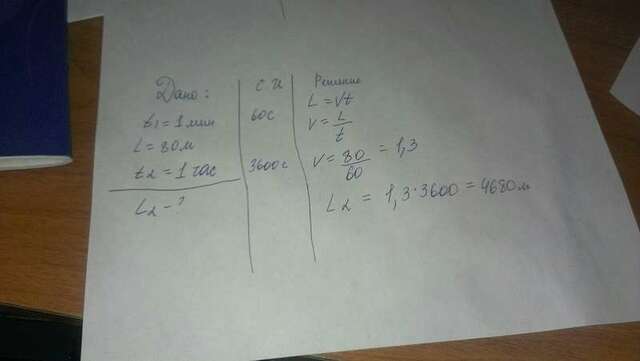 Дано:
t1 = 1 мин
L = 80 м
t2 = 1 час
L2 - ?
СИ
60 с
3600 с
Решение
L = Vt
V = L/t
V = 80/60 = 1,3
L2 = 1,3·3600 = 4680 м